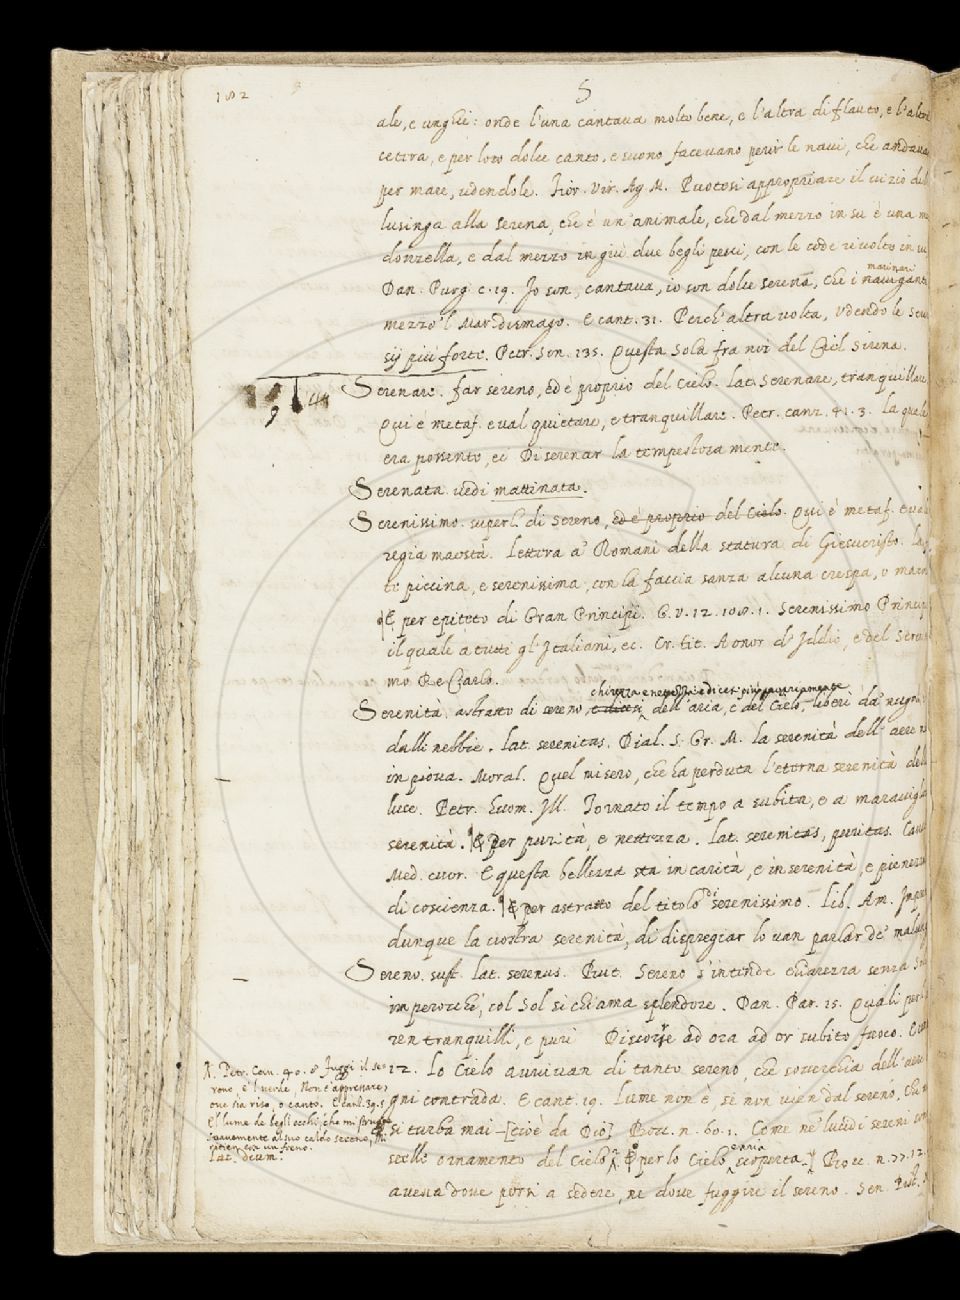 182
S
ale, e unghie: onde l'una cantaua molto bene, e l'altra di flauto, e l'altra
cetera, e per loro dolce canto, e suono faceuano perir le naui, che andauan
per mare, udendole. Fior. Vir. Ag. M. Puotesi appropriare il uizio del
lusinga alla serena, che è un'animale, che dal mezzo in su è una
donzella, e dal mezzo in giù due begli pesci, con le code riuolte in
marinari
Dan. Purg. c. 19. Jo son, cantaua, io son dolce serena, che i nauiganti
mezzo'l Mar dismago. E cant. 31. Perch'altra uolta, Vdendo le
sij più forte. Petr. Son. 135. Questa sola fra noi del Ciel Sirena.
Serenare. far sereno, ed è proprio del Cielo. lat. Serenare, tranquillare,
Qui è metaf. e ual quietare, e tranquillare. Petr. canz. 41. 3. la quale
era possente, Di serenar la tempestosa mente.
Serenata. uedi mattinata.
Serenissimo. superl. di Sereno, ed è proprio del Cielo. Qui è metaf. e
regia maestà. Lettera a' Romani della statura di Giesucristo.
te piccina, e serenissima, con la faccia sanza alcuna crespa, o
E per epiteto di Gran Principi. G. V. 12. 108. 1. Serenissimo
il quale a tutti gl'Italiani, ec. Cr. tit. A onor d'Iddio, e del
mo Re Carlo.
chiarezza e nettezza e dicesi più propriamente
Serenità. astratto di sereno, e dicesi dell'aria, e del Cielo, liberi da'
dalli nebbie. lat. serenitas. Dial. S. Gr. M. la serenità dell'aere
in piova. Moral. Quel misero, che ha perduta l'eterna serenità della
luce. Petr. Tornato il tempo a subita, e a marauiglia
serenità. E per purità, e nettezza. lat. serenitas, puritas.
Med. cuor. E questa bellezza sta in carità, e in serenità, e
di coscienza. E per astratto del titolo di serenissimo. Lib. Am.
dunque la uostra serenità, di dispregiar lo uan parlar de'
Sereno. sust. lat. serenus. But. Sereno s'intende chiarezza senza
imperocchè, col Sol si chiama splendore. Dan. Par. 15. Quali per
ren tranquilli, e puri Discorre ad ora ad or subito fuoco.
12. Lo Cielo auuiuan di tanto sereno, che souerchia dell'aere
gni contrada. E cant. 19. Lume non è, se non uien dal sereno, Che
si turba mai [cioè da Dio] Bocc. n. 60. 1. Come ne' lucidi sereni
aria
stelle ornamento del Cielo. E per lo Cielo, scoperta. Bocc. n. 77. 12.
auea doue porsi a sedere, ne doue fuggire il sereno. Sen. Pist.
Petr. Can. 40. 8 Fuggi il se-
reno, e'l uerde, Non t'appressare,
oue sia riso, o canto. E cant. 39. 5
El lume de begli occhi, che mi strugge
soauemente al suo caldo sereno, Mi
ritien con un freno.